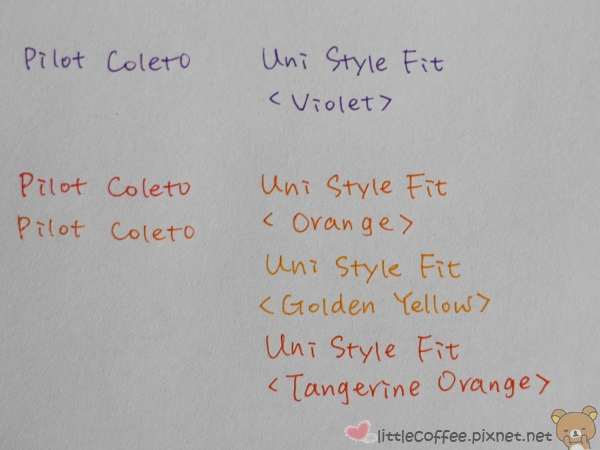 Pilot Coleto Uni Style Fit
<Violet>
Pilot Coleto Uni Style Fit
Pilot Coleto <Orange>
Uni Style Fit
<Golden Yellow>
Uni Style Fit
<Tangerine Orange>
littlecoffee.pixnet.net